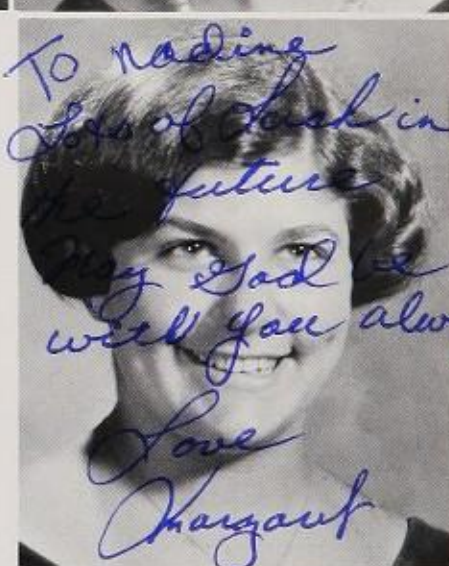 To Nadine
Lots of Luck in
the future
May God be
with you alw
Love
Margaret